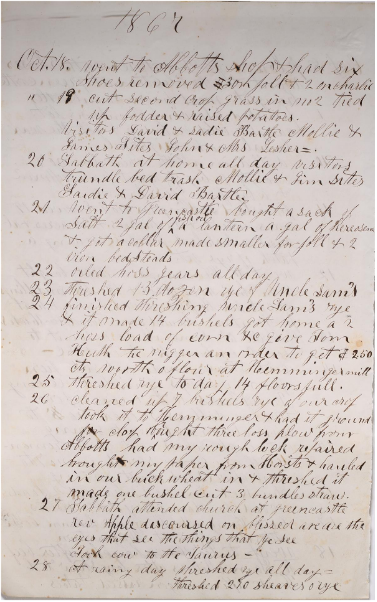 1867
Oct. 18 went to Abbotts shop & had six
shoes removed on foll & 2 on charlie
" 19 cut second crop grass in no 2 tied
up fodder & raised potatoes.
Visitors David & Sadie Bartle Mollie &
James Sites John & Mrs Lesher =
20 Sabbath at home all day visitors
trundle bed trash Mollie & Jim Sites
Sadie & David Bartle
21 went to Greencastle bought a sack of
salt 2 gal of a lantern a gal of kerosene
& got a collar made smaller for foll & 2
iron bedsteads
22 oiled hoss gears all day
23 thrashed 13 dozen rye of Uncle Sam's
24 finished threshing Uncle Sam's rye
& it made 14 bushels got home a 2
hoss load of corn & give Hom
the nigger an order to get $ 2.50
worth of flour at Hemmingers mill
25 threshed rye to day 14 floors full.
26 cleaned up 7 bushels rye of our crop
took it to Hemmingers & had it ground
for chop bought three loss plow from
Abbotts had my rough lock repaired
brought my paper from Hoists & hauled
in our buckwheat in & threshed it
made one bushel cut 3 bundles straw.
27 Sabbath attended church at greencastle
rev Apple discoursed on blessed are the
eyes that see the things that ye see
Took cow to the Laureys -
28 A rainy day threshed rye all day =
threshed 210 sheaves rye